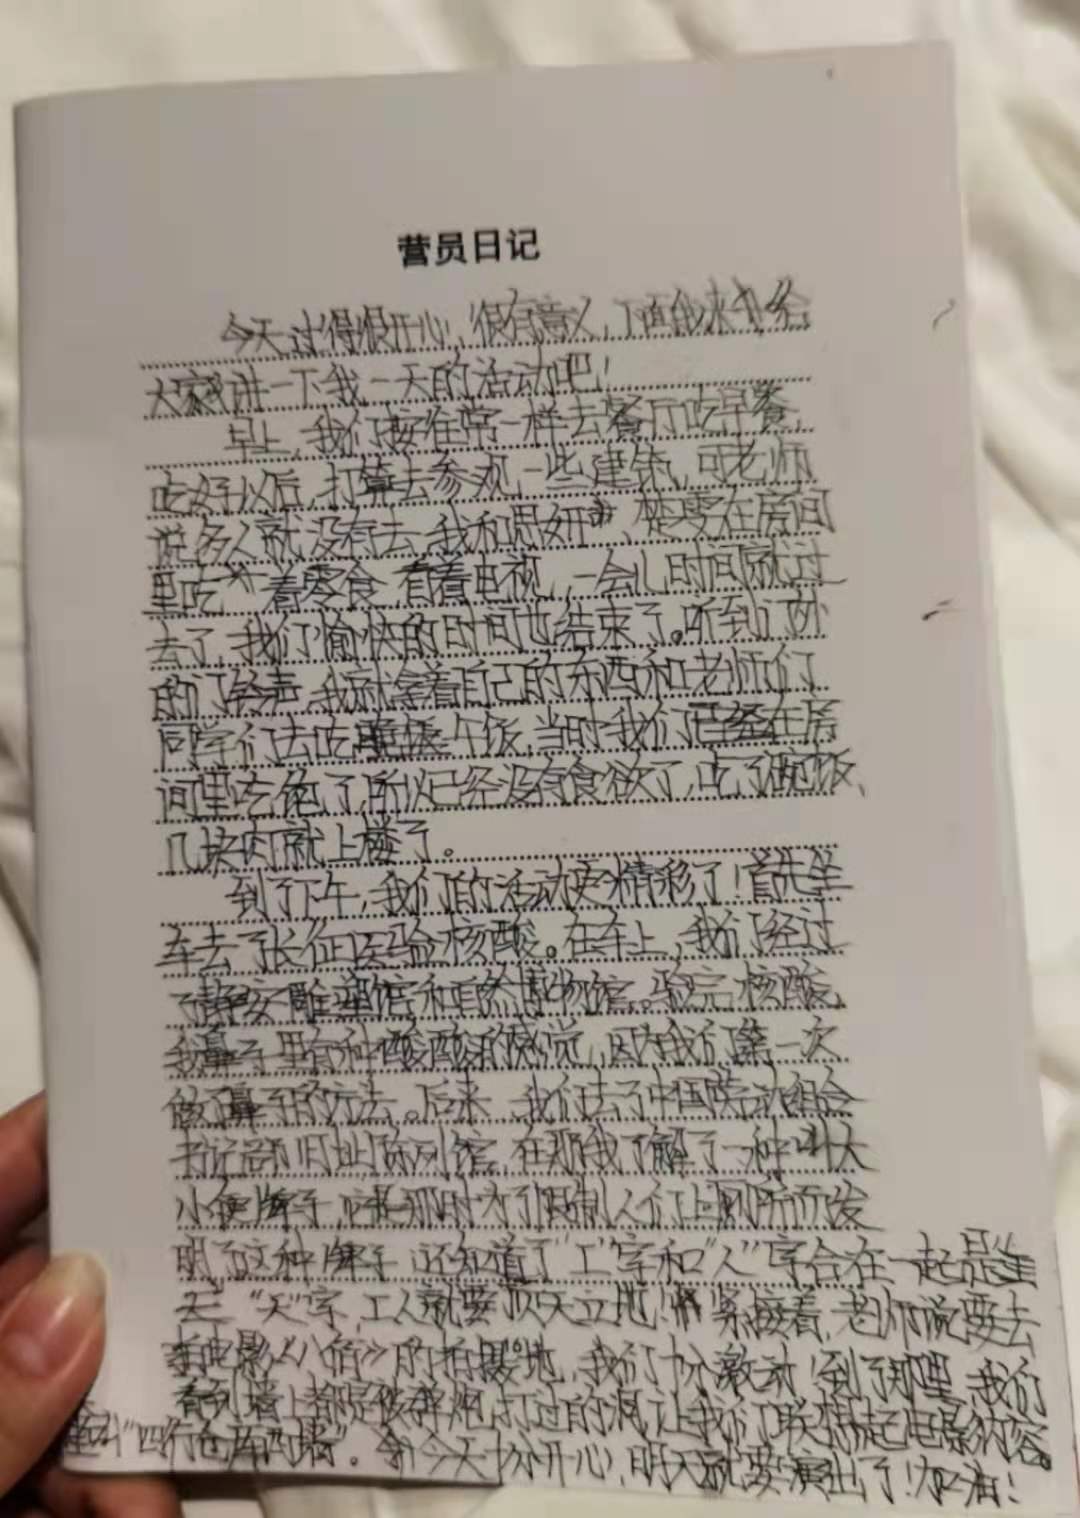 营员日记
今天过得很开心,很有意义,下面我来给
大家讲一下我一天的活动吧!
早上,我们按往常一样去餐厅吃早餐,
吃好以后,打算去参观一些建筑,可老师
说多人就没有去,我和思妍、楚雯在房间
里吃着零食,看着电视,一会儿时间就过
去了,我们愉快的时间也结束了。听到门外
的门铃声,我就拿着自己的东西和老师们
同学们去吃午饭,当时我们已经在房
间里吃饱了,所以已经没有食欲了,吃了碗饭、
几块肉就上楼了。
到了下午,我们的活动更精彩了!首先坐
车去了长征医验核酸。在车上,我们经过
了静安雕塑馆和自然博物馆。验完核酸,
我鼻子里有种酸酸的感觉,因为我们第一次
做了鼻子的方法。后来,我们去了中国劳动组合
书记部旧址陈列馆,在那我了解了一种叫大
小便牌子,它是那时为了限制人们上厕所而发
明了这种牌子,还知道了"工"字和"人"字合在一起是
天"天"字,工人就要顶天立地!紧接着,老师说要去
电影《八佰》的拍摄地,我们十分激动!到了那里,我们
看到墙上都是被弹炮打过的洞,让我们联想起电影内容。
"四行仓库西墙"。今天十分开心,明天就要演出了!加油!